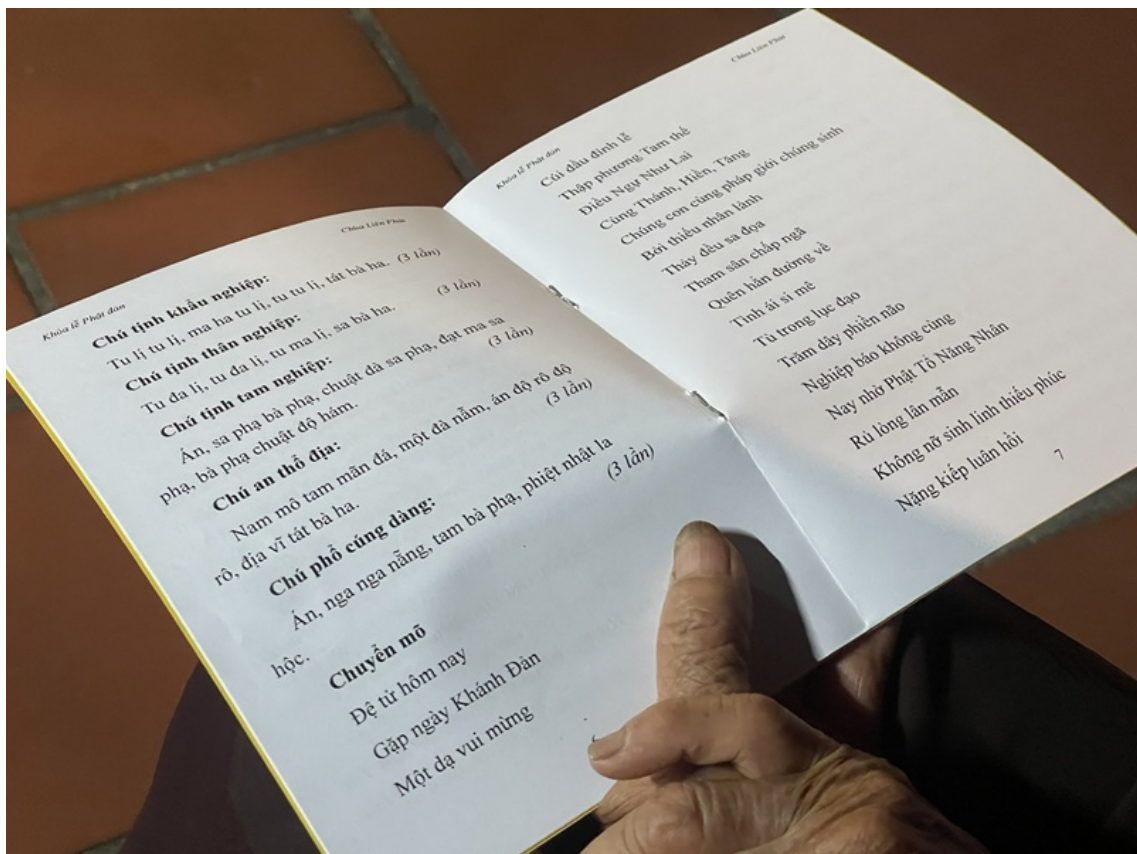 Khóa lễ Phật đản
Chùa Liên Phái
Chú tịnh khẩu nghiệp:
Tu lị tu lị, ma ha tu lị, tu tu lị, tát bà ha. (3 lần)
Chú tịnh thân nghiệp:
Tu đa lị, tu đa lị, tu ma lị, sa bà ha.
(3 lần)
Chú tịnh tam nghiệp:
Án, sa phạ bà phạ, chuật đà sa phạ, đạt ma sa
phạ, bà phạ chuật độ hám.
(3 lần)
Chú an thổ địa:
Nam mô tam mãn đá, một đà nẫm, án độ rô độ
rô, địa vĩ tát bà ha.
(3 lần)
Chú phổ cúng dàng:
Án, nga nga nẵng, tam bà phạ, phiệt nhật la
hộc.
(3 lần)
Chuyển mõ
Đệ tử hôm nay
Gặp ngày Khánh Đản
Một dạ vui mừng
Khóa lễ Phật đản
Cúi đầu đỉnh lễ
Thập phương Tam thế
Điều Ngự Như Lai
Cùng Thánh, Hiền, Tăng
Chúng con cùng pháp giới chúng sinh
Bởi thiếu nhân lành
Thảy đều sa đọa
Tham sân chấp ngã
Quên hẳn đường về
Tình ái si mê
Tù trong lục đạo
Trăm dây phiền não
Nghiệp báo không cùng
Nay nhờ Phật Tổ Năng Nhân
Rủ lòng lân mẫn
Không nỡ sinh linh thiếu phúc
Nặng kiếp luân hồi
7